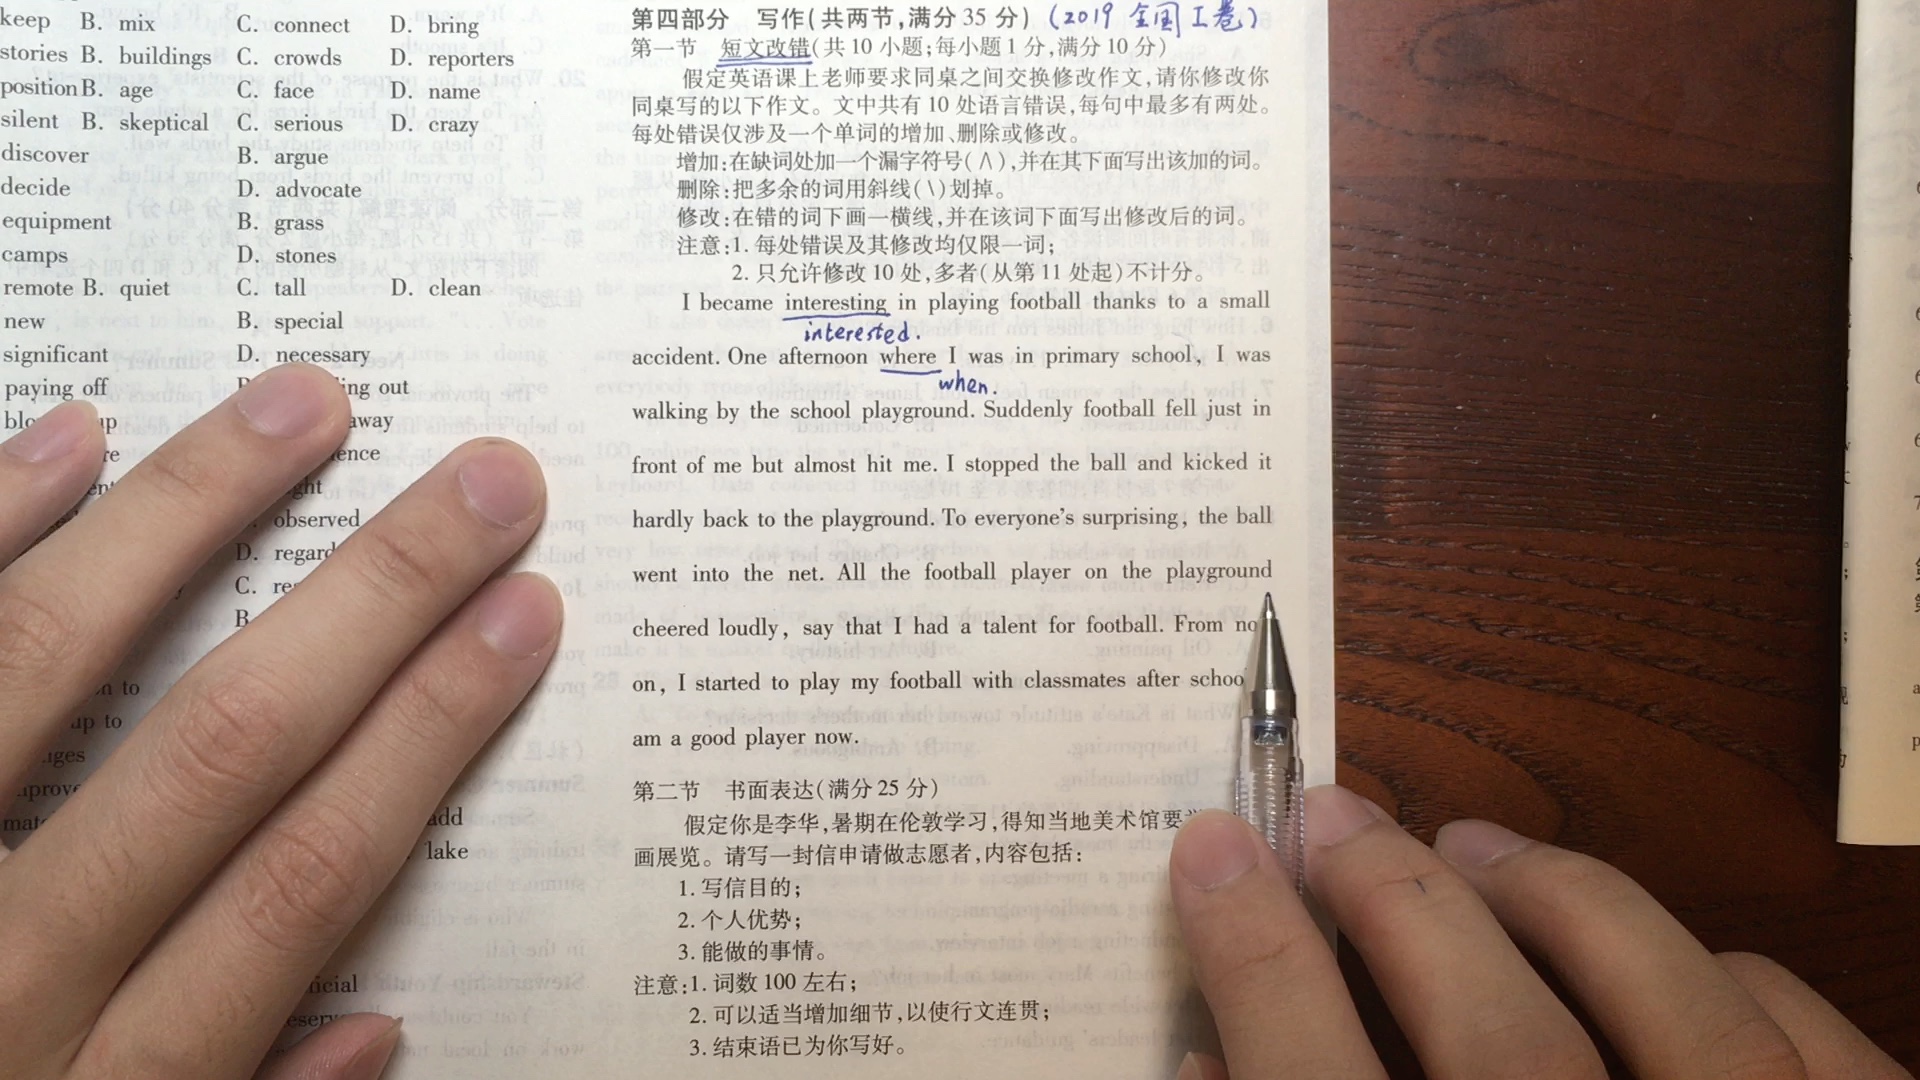 keep B. mix C. connect D. bring
stories B. buildings C. crowds D. reporters
position B. age C. face D. name
silent B. skeptical C. serious D. crazy
discover B. argue
decide D. advocate
equipment B. grass
camps D. stones
remote B. quiet C. tall D. clean
new B. special
significant D. necessary
paying off ing out
up away
ence
ght
observed
D. regard
C.
B.
to
up to
add
lake
第四部分 写作(共两节,满分 35 分)(2019 全国 I 卷)
第一节 短文改错(共 10 小题;每小题 1 分,满分 10 分)
假定英语课上老师要求同桌之间交换修改作文,请你修改你
同桌写的以下作文。文中共有 10 处语言错误,每句中最多有两处。
每处错误仅涉及一个单词的增加、删除或修改。
增加:在缺词处加一个漏字符号(∧),并在其下面写出该加的词。
删除:把多余的词用斜线(\)划掉。
修改:在错的词下画一横线,并在该词下面写出修改后的词。
注意:1. 每处错误及其修改均仅限一词;
2. 只允许修改 10 处,多者(从第 11 处起)不计分。
I became interesting in playing football thanks to a small
interested.
accident. One afternoon where I was in primary school, I was
when.
walking by the school playground. Suddenly football fell just in
front of me but almost hit me. I stopped the ball and kicked it
hardly back to the playground. To everyone's surprising, the ball
went into the net. All the football player on the playground
cheered loudly, say that I had a talent for football. From no
on, I started to play my football with classmates after schoo
am a good player now.
第二节 书面表达(满分 25 分)
假定你是李华,暑期在伦敦学习,得知当地美术馆要
画展览。请写一封信申请做志愿者,内容包括:
1. 写信目的;
2. 个人优势;
3. 能做的事情。
注意:1. 词数 100 左右;
2. 可以适当增加细节,以使行文连贯;
3. 结束语已为你写好。